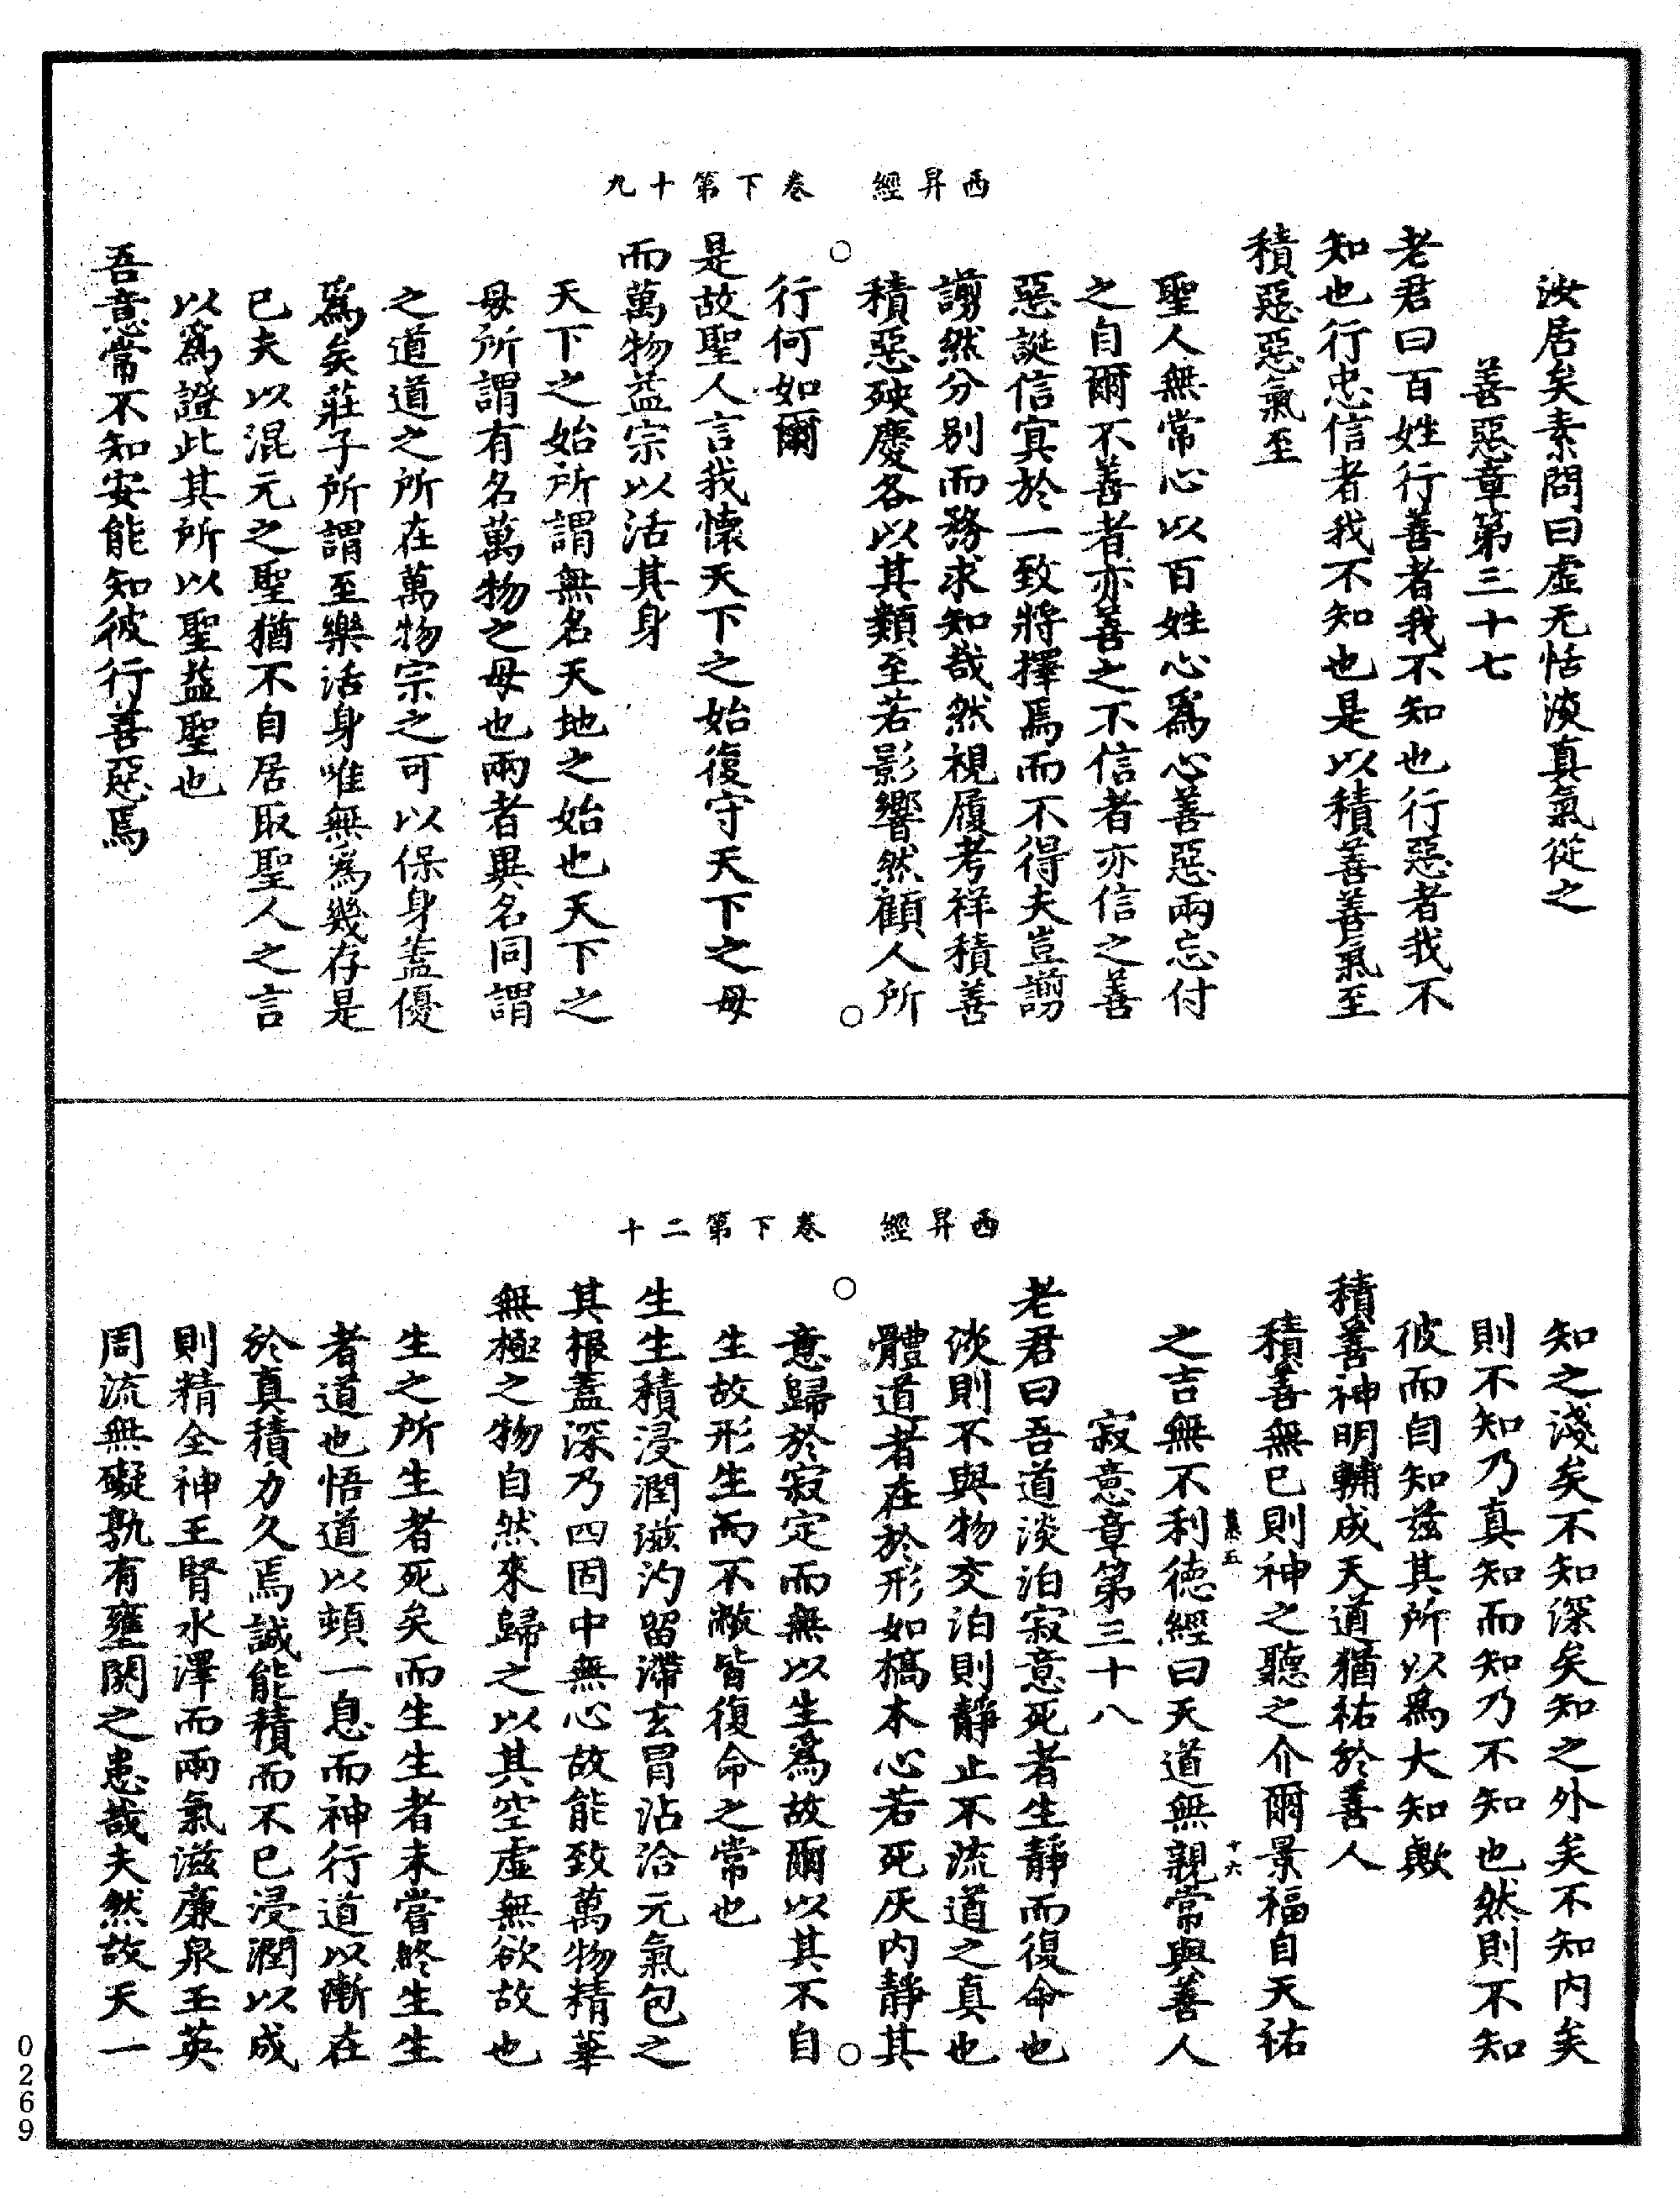 汝居矣素問曰虛无恬淡真氣從之
善惡章第三十七
老君曰百姓行善者我不知也行惡者我不
知也行忠信者我不知也是以積善善氣至
積惡惡氣至
聖人無常心以百姓心爲心善惡兩忘付
之自爾不善者亦善之不信者亦信之善
惡誕信寘於一致將擇焉而不得夫豈謭
謭然分別而務求知哉然視履考祥積善
積惡殃慶各以其類至若影響然顧人所
行何如爾
是故聖人言我懷天下之始復守天下之母
而萬物益宗以活其身
天下之始所謂無名天地之始也天下之
母所謂有名萬物之母也兩者異名同謂
之道道之所在萬物宗之可以保身蓋優
爲矣莊子所謂至樂活身唯無爲幾存是
已夫以混元之聖猶不自居取聖人之言
以爲證此其所以聖益聖也
吾意常不知安能知彼行善惡焉
西昇經 卷下第十九
知之淺矣不知深矣知之外矣不知内矣
則不知乃真知而知乃不知也然則不知
彼而自知兹其所以爲大知歟
積善神明輔成天道猶祐於善人
積善無已則神之聽之介爾景福自天祐
之吉無不利德經曰天道無親常與善人
慕五 十六
寂意章第三十八
老君曰吾道淡泊寂意死者生靜而復命也
淡則不與物交泊則靜止不流道之真也
體道者在於形如槁木心若死灰内靜其
意歸於寂定而無以生爲故爾以其不自
生故形生而不敝皆復命之常也
生生積浸潤滋汋留滯玄冒沾洽元氣包之
其根蓋深乃四固中無心故能致萬物精華
無極之物自然來歸之以其空虛無欲故也
生之所生者死矣而生生者未嘗終生生
者道也悟道以頓一息而神行道以漸在
於真積力久焉誠能積而不已浸潤以成
則精全神王腎水澤而兩氣滋廉泉玉英
周流無礙孰有壅閼之患哉夫然故天一
西昇經 卷下第二十
0269